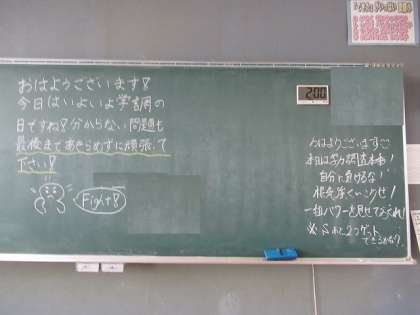 おはようございます!
今日はいよいよ学習調の
日ですね!分からない問題も
最後まであきらめずに頑張って
下さい!
Fight!
2:00
おはようございます
本日は学力調査本番!
自分に負けるな!
根気強くいこうぜ!
一組パワーを見せてくれ!